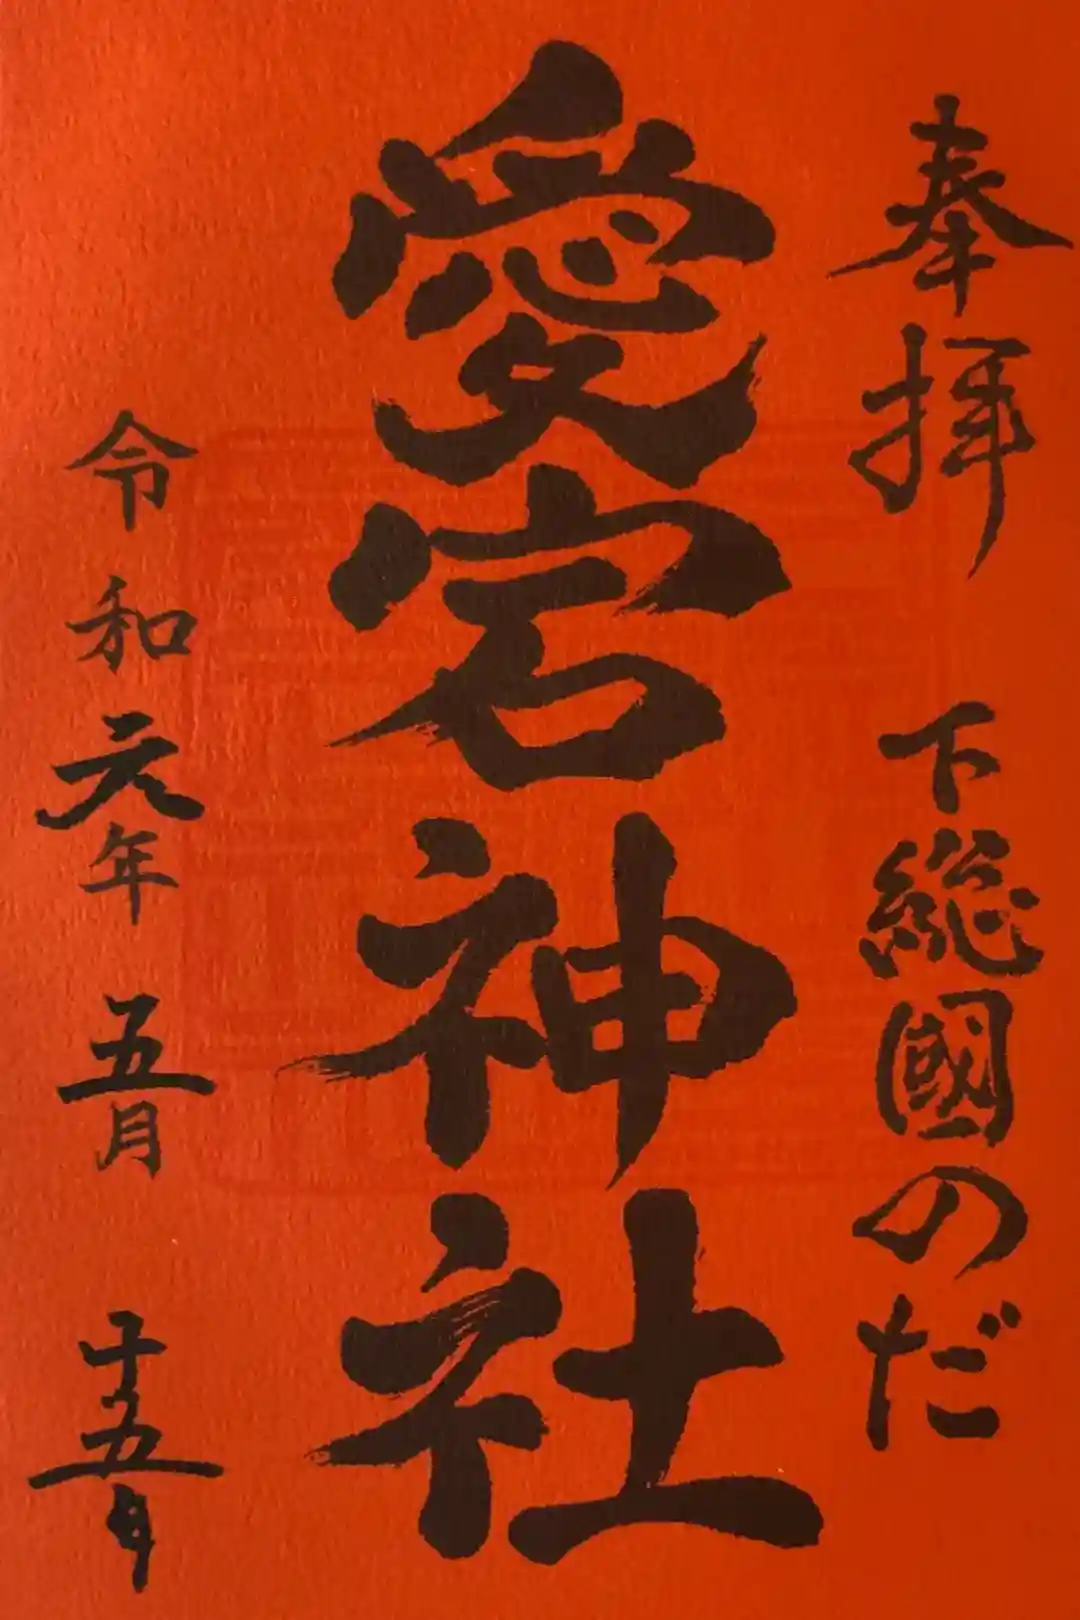 奉拝　下総國のだ
愛宕神社
令和元年五月十五日